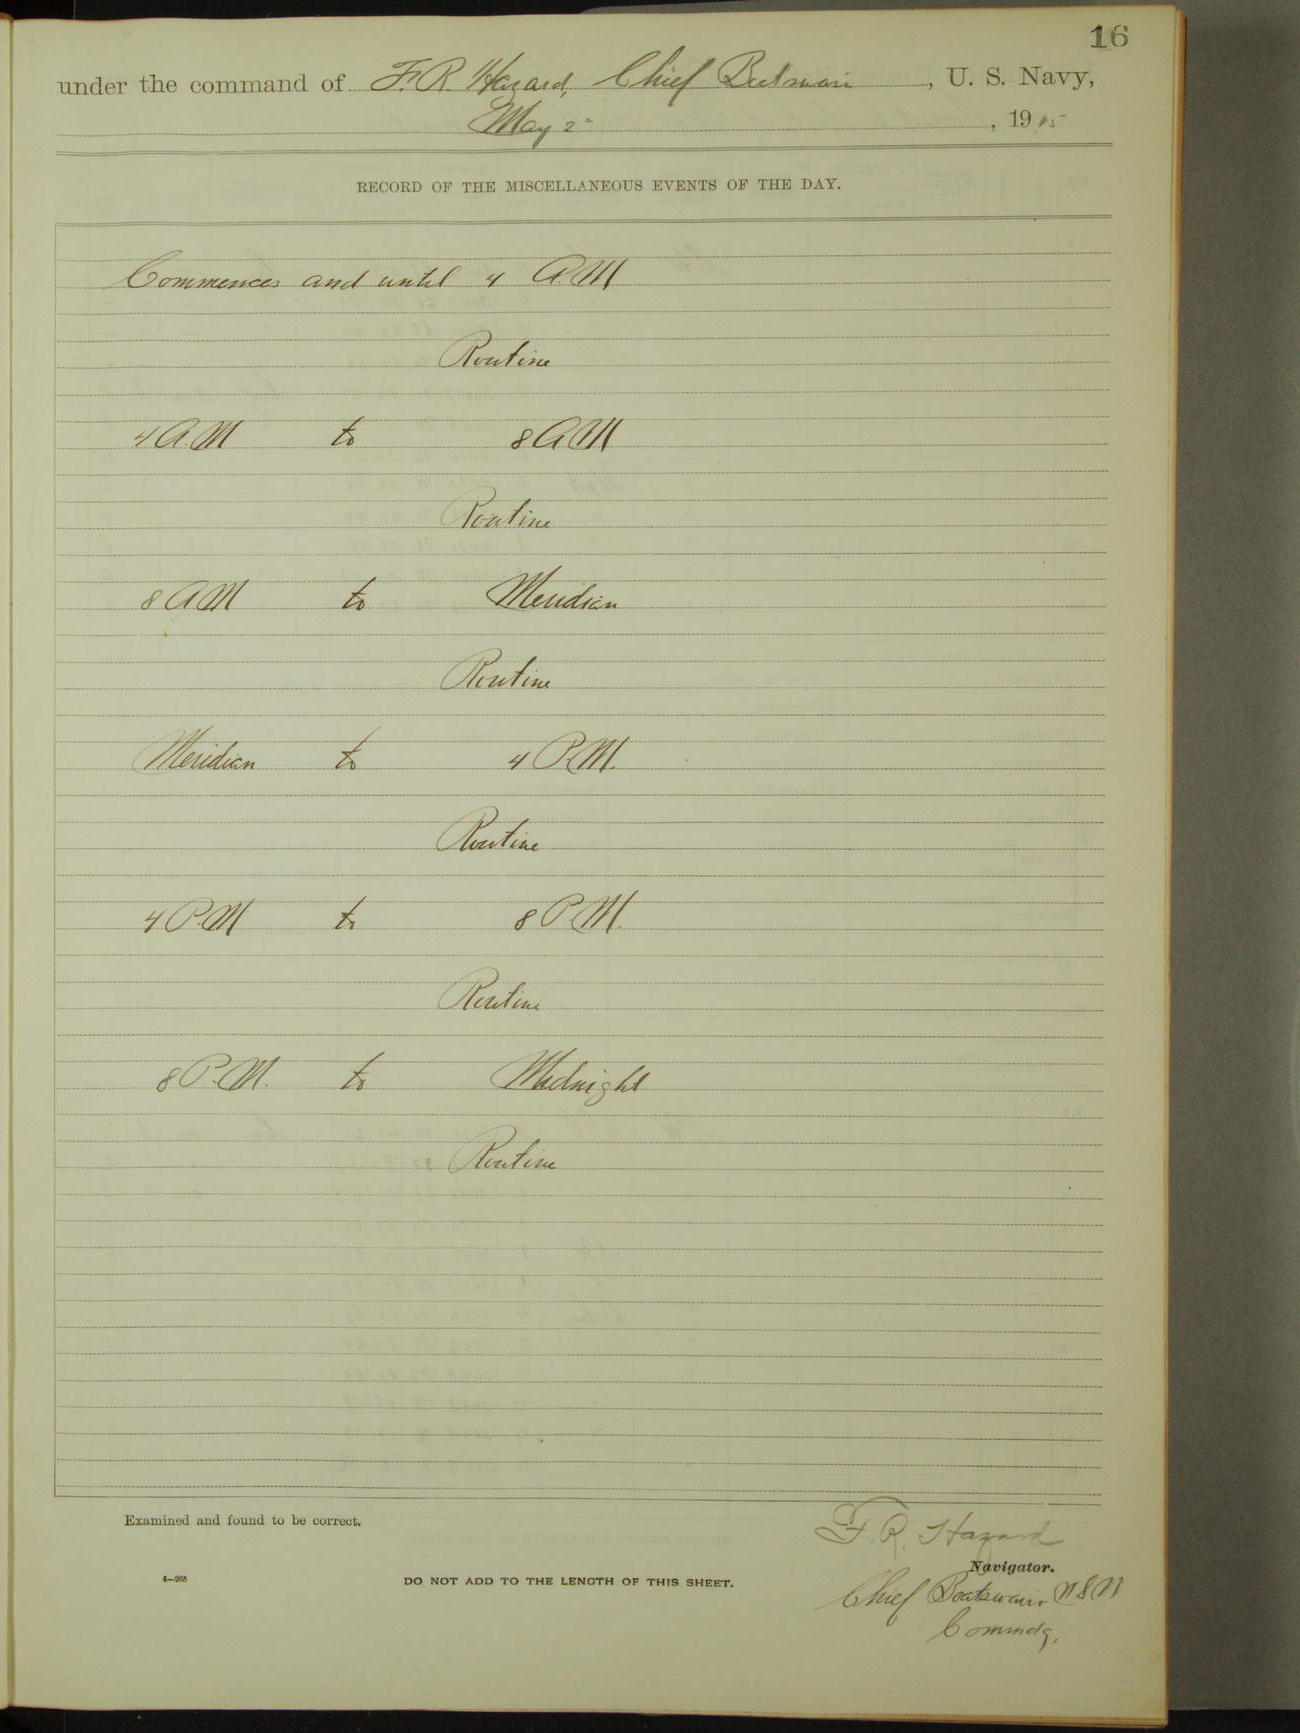 16
under the command of F. R. Hazard, Chief Botswain, U. S. Navy,
May 2", 1905
RECORD OF THE MISCELLANEOUS EVENTS OF THE DAY.
Commences and until 4 A.M
Routine
4 A.M to 8 A M
Routine
8 A M to Meridian
Routine
Meridian to 4 P.M.
Routine
4 P.M to 8 P.M.
Routine
8 P.M. to Midnight
Routine
Examined and found to be correct.
F. R. Hazard
Navigator.
4—265
DO NOT ADD TO THE LENGTH OF THIS SHEET.
Chief Boatswain U S N
Commdg,